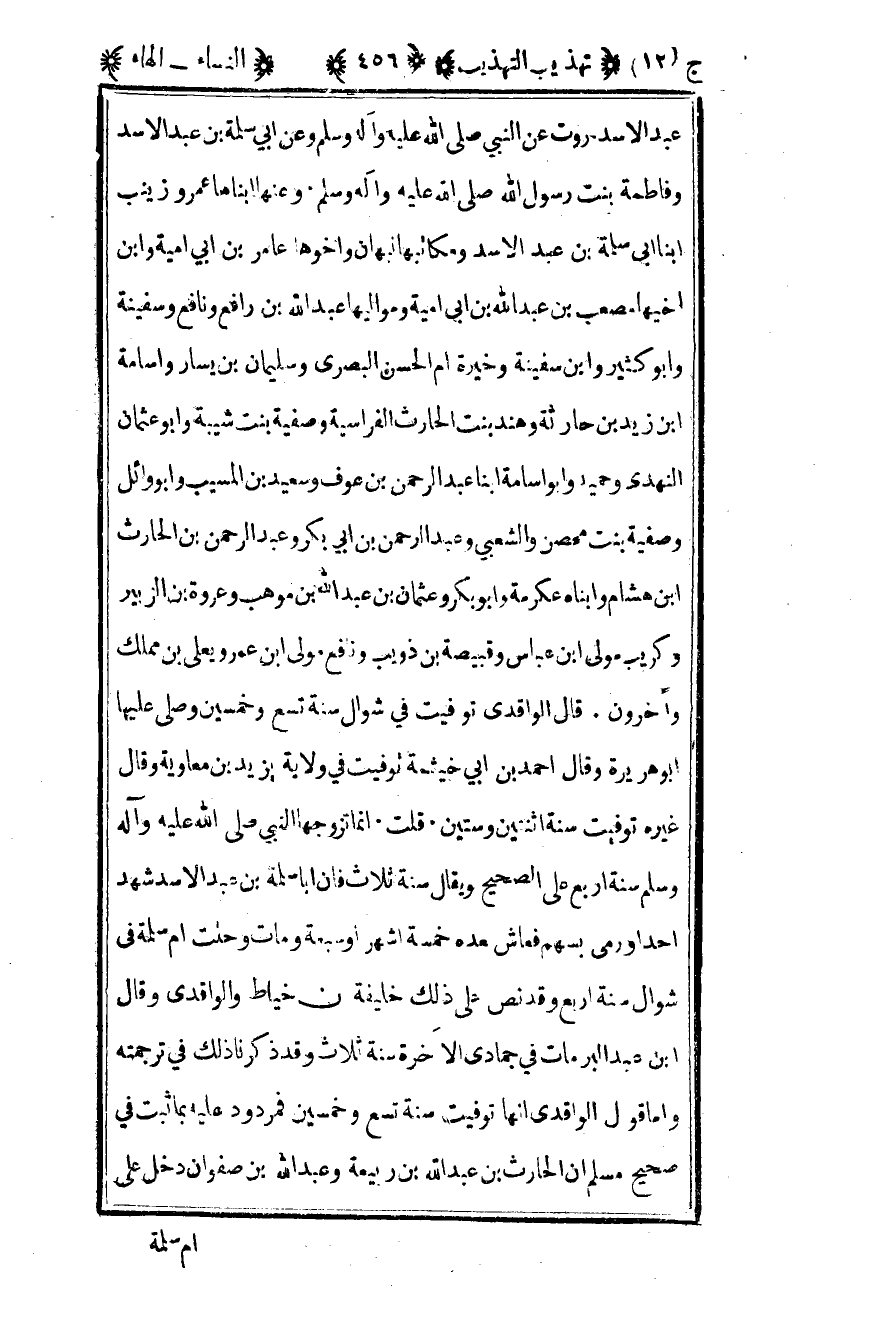 ج (١٢) تهذيب التهذيب ٤٥٦ النساء - الهاء
عبدالاسد روت عن النبي صلى الله عليه وآله وسلم وعن ابي سلمة بن عبدالاسد
وفاطمة بنت رسول الله صلى الله عليه وآله وسلم . وعنها ابناها عمرو زينب
ابنا ابي سلمة بن عبد الاسد ومكاتبها نبهان واخوها عامر بن ابي امية وابن
اخيها مصعب بن عبدالله بن ابي امية ومواليها عبدالله بن رافع ونافع وسفينة
وابو كثير وابن سفينة وخيرة ام الحسن البصرى وسليمان بن يسار واسامة
ابن زيد بن حارثة وهند بنت الحارث الفراسية وصفية بنت شيبة وابو عثمان
النهدى وحميد وابواسامة ابنا عبدالرحمن بن عوف وسعيد بن المسيب وابو وائل
وصفية بنت محصن والشعبي وعبدالرحمن بن ابي بكر وعبدالرحمن بن الحارث
ابن هشام وابناه عكرمة وابو بكر وعثمان بن عبدالله بن موهب وعروة بن الزبير
وكريب مولى ابن عباس وقبيصة بن ذويب ونافع مولى ابن عمرو يعلى بن مملك
وآخرون . قال الواقدى توفيت في شوال سنة تسع وخمسين وصلى عليها
ابوهريرة وقال احمد بن ابي خيثمة توفيت في ولاية يزيد بن معاوية وقال
غيره توفيت سنة اثنتين وستين . قلت . انما تزوجها النبي صلى الله عليه وآله
وسلم سنة اربع على الصحيح ويقال سنة ثلاث فان ابا سلمة بن عبدالاسد شهد
احدا ورمى بسهم فعاش بعده خمسة اشهر اوسبعة ومات وحلت ام سلمة في
شوال سنة اربع وقد نص على ذلك خليفة بن خياط والواقدى وقال
ابن عبدالبر مات في جمادى الآخرة سنة ثلاث وقد ذكرنا ذلك في ترجمته
واما قول الواقدى انها توفيت سنة تسع وخمسين فمردود عليه بما ثبت في
صحيح مسلم ان الحارث بن عبدالله بن ربيعة وعبدالله بن صفوان دخل على
ام سلمة